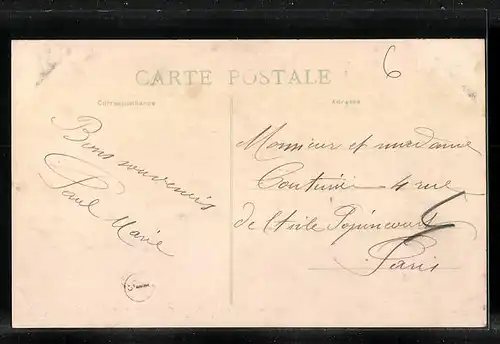 CARTE POSTALE
6
Correspondance
Adresse
Bons souvenirs
Paul Marie
Monsieur et madame
4 rue
de l'asile Popincourt
Paris